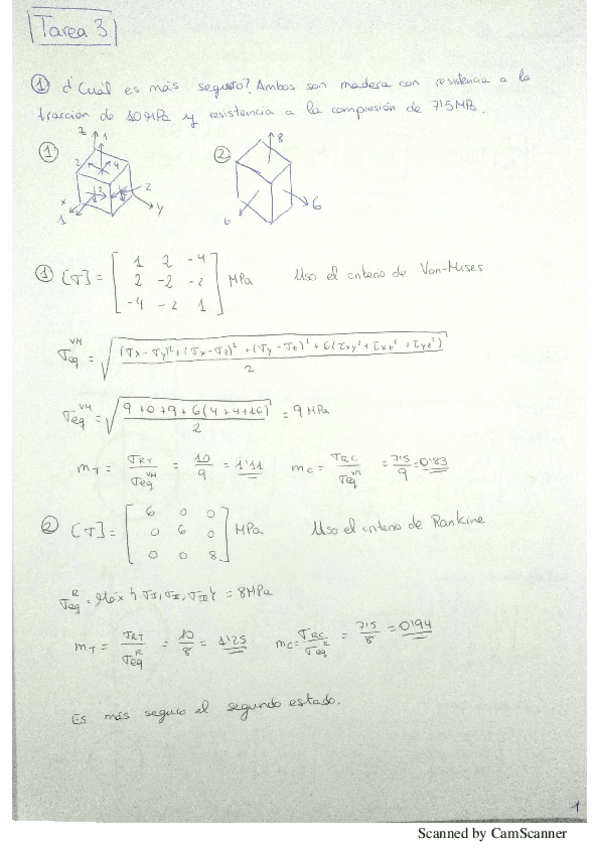 Tarea 3
① ¿Cuál es más seguro? Ambos son madera con resistencia a la
tracción de 10 MPa y resistencia a la compresión de 7'5 MPa.
① z 1 2 4 3 2 x 1 y
② 8 6 6
① [T] = [ 1 2 -4 ; 2 -2 -2 ; -4 -2 1 ] MPa Uso el criterio de Von-Mises
σeq^VM = √( ((σx - σy)² + (σx - σz)² + (σy - σz)² + 6(τxy² + τxz² + τyz²)) / 2 )
σeq^VM = √( (9 + 0 + 9 + 6(4 + 4 + 16)) / 2 ) = 9 MPa
mT = σRT / σeq^VM = 10/9 = 1'11 mC = σRC / σeq^VM = 7'5/9 = 0'83
② [T] = [ 6 0 0 ; 0 6 0 ; 0 0 8 ] MPa Uso el criterio de Rankine
σeq^R = Máx { σI, σII, σIII } = 8 MPa
mT = σRT / σeq^R = 10/8 = 1'25 mC = σRC / σeq^R = 7'5/8 = 0'94
Es más seguro el segundo estado.
1
Scanned by CamScanner